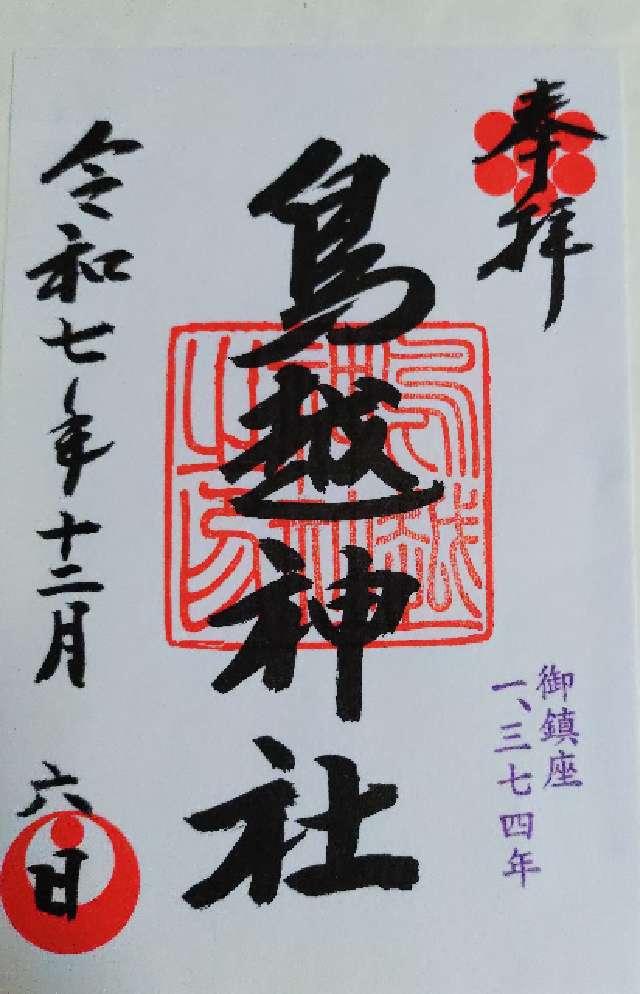 奉拝
御鎮座
一、三七四年
鳥越神社
令和七年十二月六日